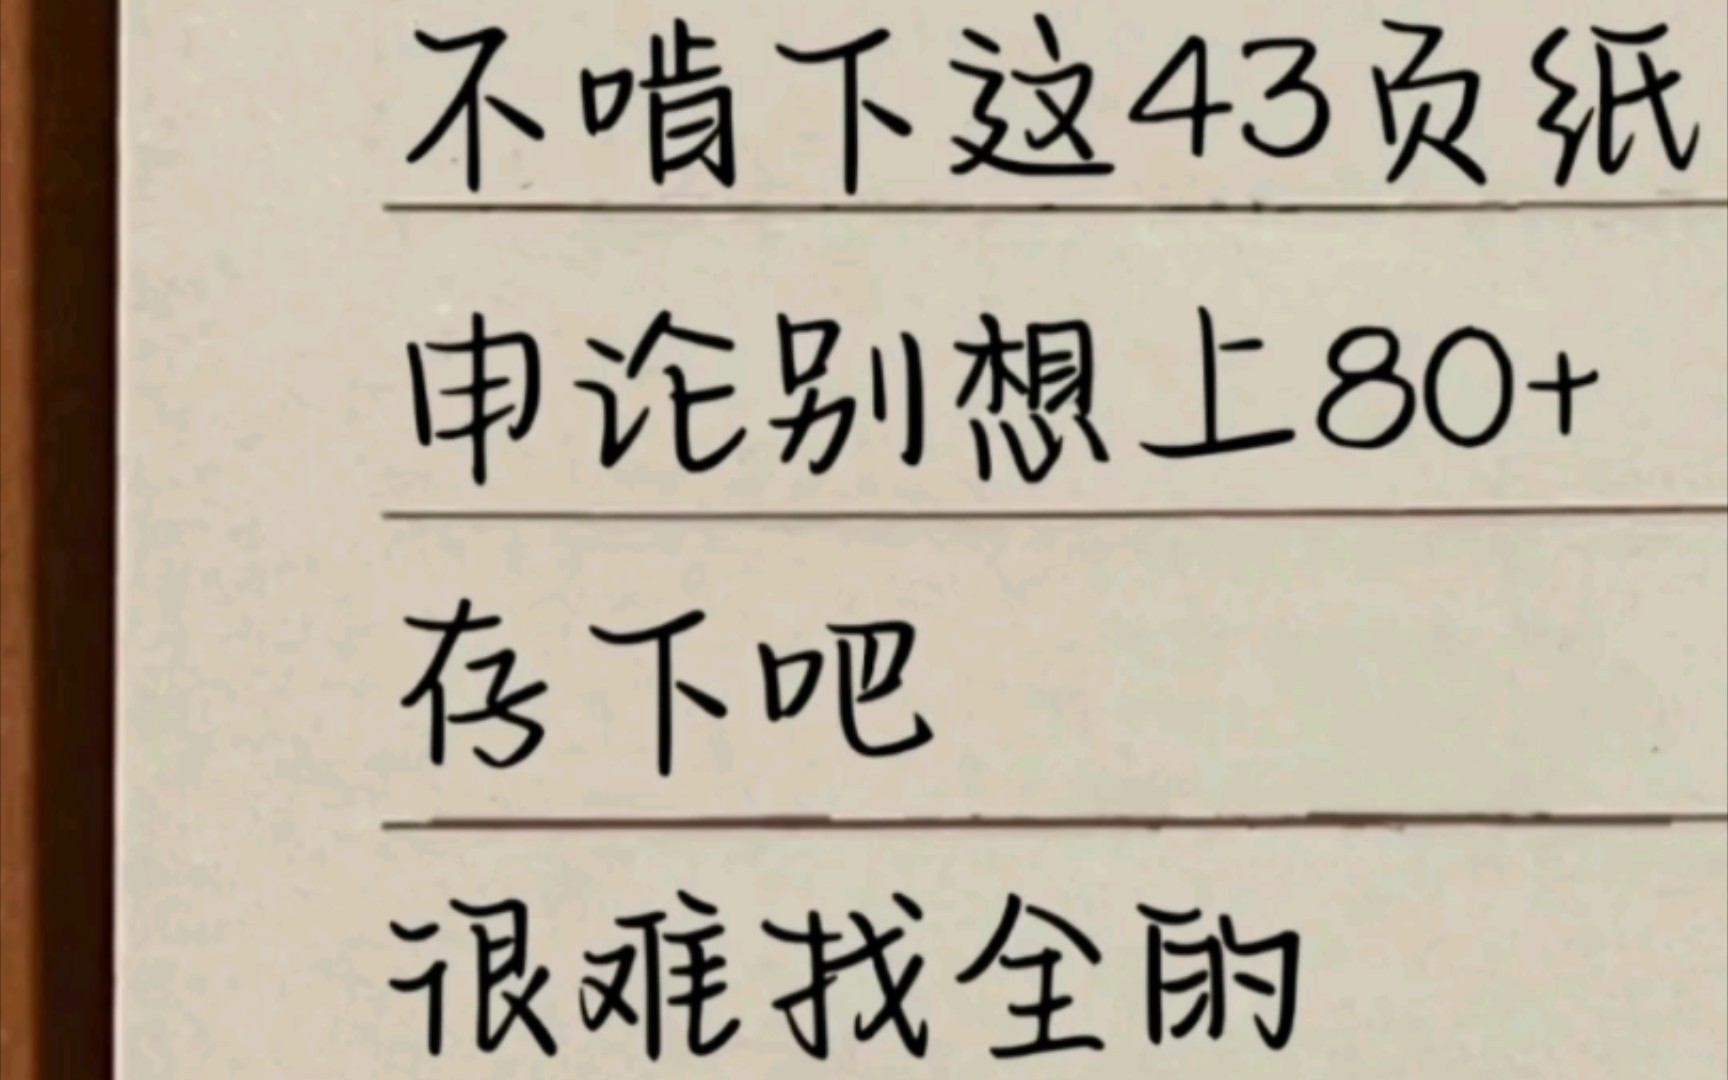 不啃下这43页纸
申论别想上80+
存下吧
很难找全的